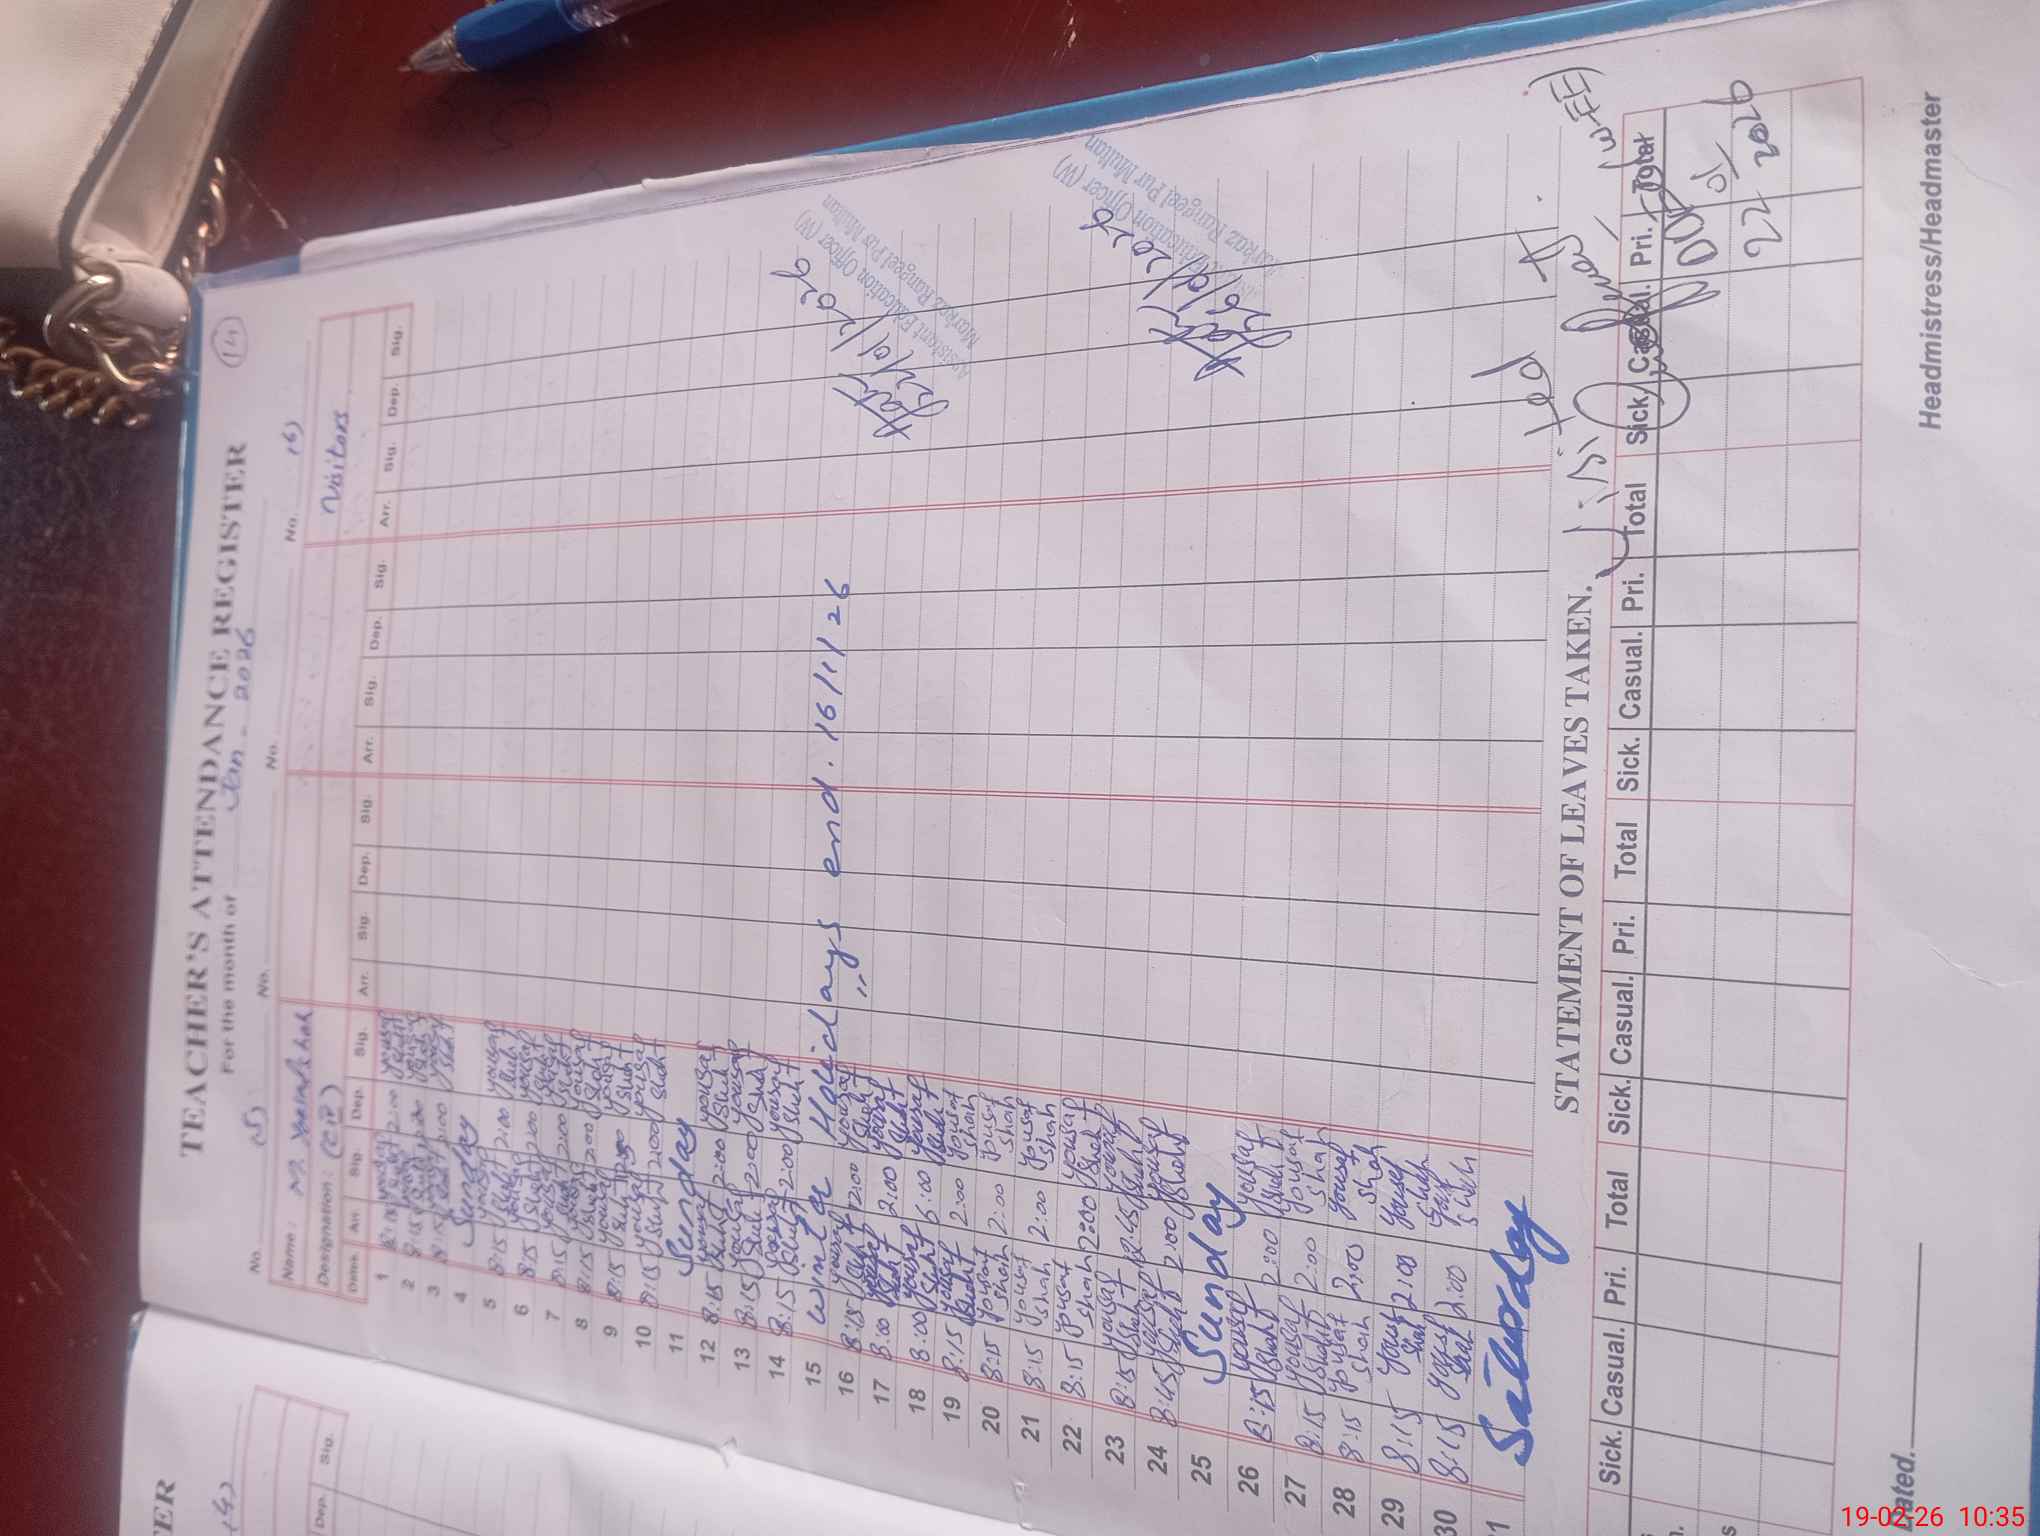 TEACHER'S ATTENDANCE REGISTER
For the month of Jan - 2026
(14)
No. (5) No. No. No. (6)
Name: M. Yousaf shah
Visitors
Designation:
Dates Arr. Sig. Dep. Sig. Arr. Sig. Dep. Sig. Arr. Sig. Dep. Sig. Arr. Sig. Dep. Sig.
1 8:15 yousaf shah 2:00 yousaf shah
2 8:15 yousaf shah 2:00 yousaf shah
3 8:15 yousaf shah 2:00 yousaf shah
4 Sunday
5 8:15 yousaf shah 2:00 yousaf shah
6 8:15 yousaf shah 2:00 yousaf shah
7 8:15 yousaf shah 2:00 yousaf shah
8 8:15 yousaf shah 2:00 yousaf shah
9 8:15 yousaf shah yousaf shah
10 8:15 yousaf shah 2:00 yousaf shah
11 Sunday
12 8:15 yousaf shah 2:00 yousaf shah
13 8:15 yousaf shah 2:00 yousaf shah
14 8:15 yousaf shah 2:00 yousaf shah
15 Winter Holidays end. 16/1/26
16 8:15 yousaf shah 12:00 yousaf shah
17 8:00 yousaf shah 2:00 yousaf shah
18 8:00 yousaf shah 5:00 yousaf shah
19 8:15 yousaf shah 2:00 yousaf shah
20 8:15 yousaf shah 2:00 yousaf shah
21 8:15 yousaf shah 2:00 yousaf shah
22 8:15 yousaf shah 2:00 yousaf shah
23 8:15 yousaf shah 12:45 yousaf shah
24 8:45 yousaf shah 2:00 yousaf shah
25 Sunday
26 8:15 yousaf shah 2:00 yousaf shah
27 8:15 yousaf shah 2:00 yousaf shah
28 8:15 yousaf shah 2:00 yousaf shah
29 8:15 yousaf shah 2:00 yousaf shah
30 8:15 yousaf shah 2:00 yousaf shah
31 Saturday
21/01/2026
Assistant Education Officer (W)
Markaz Rangeel Pur Multan
/01/2026
Education Officer (W)
Markaz Rangeel Pur Multan
(W-EE)
STATEMENT OF LEAVES TAKEN.
Sick. Casual. Pri. Total Sick. Casual. Pri. Total Sick. Casual. Pri. Total Sick. Casual. Pri. Total
22 01 2026
Dated.
Headmistress/Headmaster
TER
(4)
Dep. Sig.
19-02-26 10:35